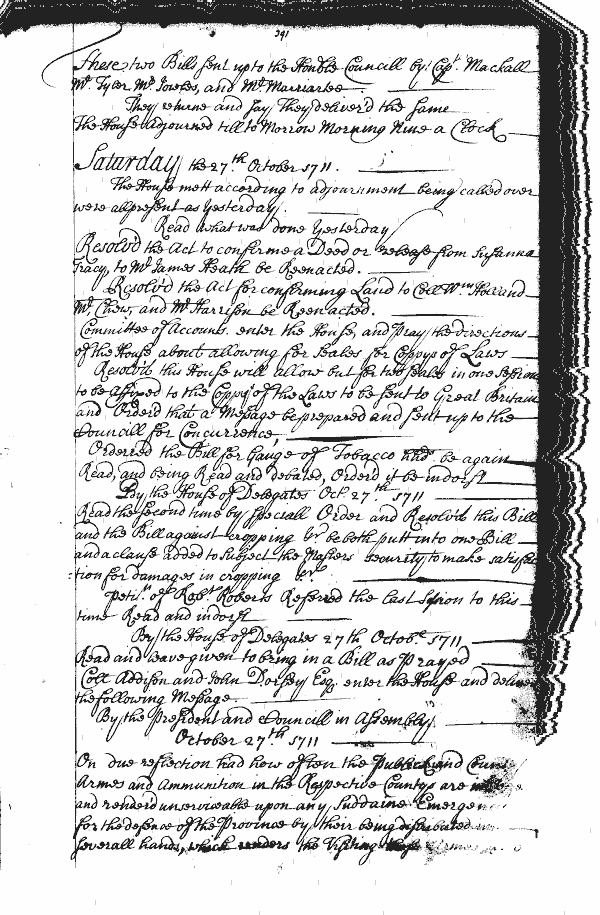 391
These two Bills sent up to the Honble Councill by Capt. Mackall
Mr. Tyler Mr. Jowles, and Mr. Marriartee
They returne and Say They deliverd the Same
The House adjourned till to Morrow Morning Nine a Clock
Saturday the 27th October 1711.
The House mett according to adjournment being called over
were all present as Yesterday.
Read what was done Yesterday
Resolvd the Act to confirme a Deed or release from Susanna
Tracy, to Mr. James Heath be Reenacted.
Resolvd the Act for confirming Land to Coll Wm. Holland
Mr. Chew, and Mr. Harrison be Reenacted.
Committee of Accounts enter the House, and Pray the directions
of the House about allowing for Seales for Coppys of Laws
Resolvd this House will allow but for two Seales in one Session
to be Affixed to the Coppys of the Laws to be sent to Great Brittain
and Orderd that a Message be prepared and sent up to the
Councill for Concurrence,
Orderred the Bill for Gauge of Tobacco hhds. be again
Read, and being Read and debated, Orderd it be indorst
By the House of Delegates Oct. 27th 1711
Read the Second time by Speciall Order and Resolvd this Bill
and the Bill against cropping &c be both putt into one Bill
and a clause added to Subject the Masters security to make satisfac
tion for damages in cropping &c.
Petin. of Robt. Roberts Referred the last Session to this
time Read and indorst
By the House of Delegates 27th Octobr. 1711
Read and leave given to bring in a Bill as Prayed
Coll Addison and John Dorsey Esq. enter the House and deliver
the following Message.
By the President and Councill in Assembly
October 27th 1711
On due reflection had how often the Publick and
Armes and Ammunition in the Respective Countys are
and renderd unserviceable upon any Suddaine Emergen
for the defence of the Province by their being distributed
severall hands, which renders the Visiting those Armes